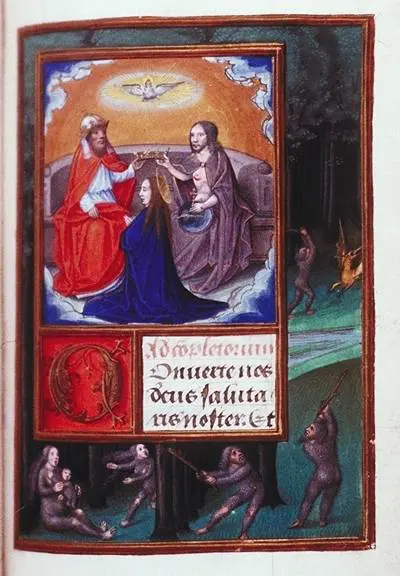 Ad cōpletorium
COnuerte nos
deus saluta
ris noster. Et